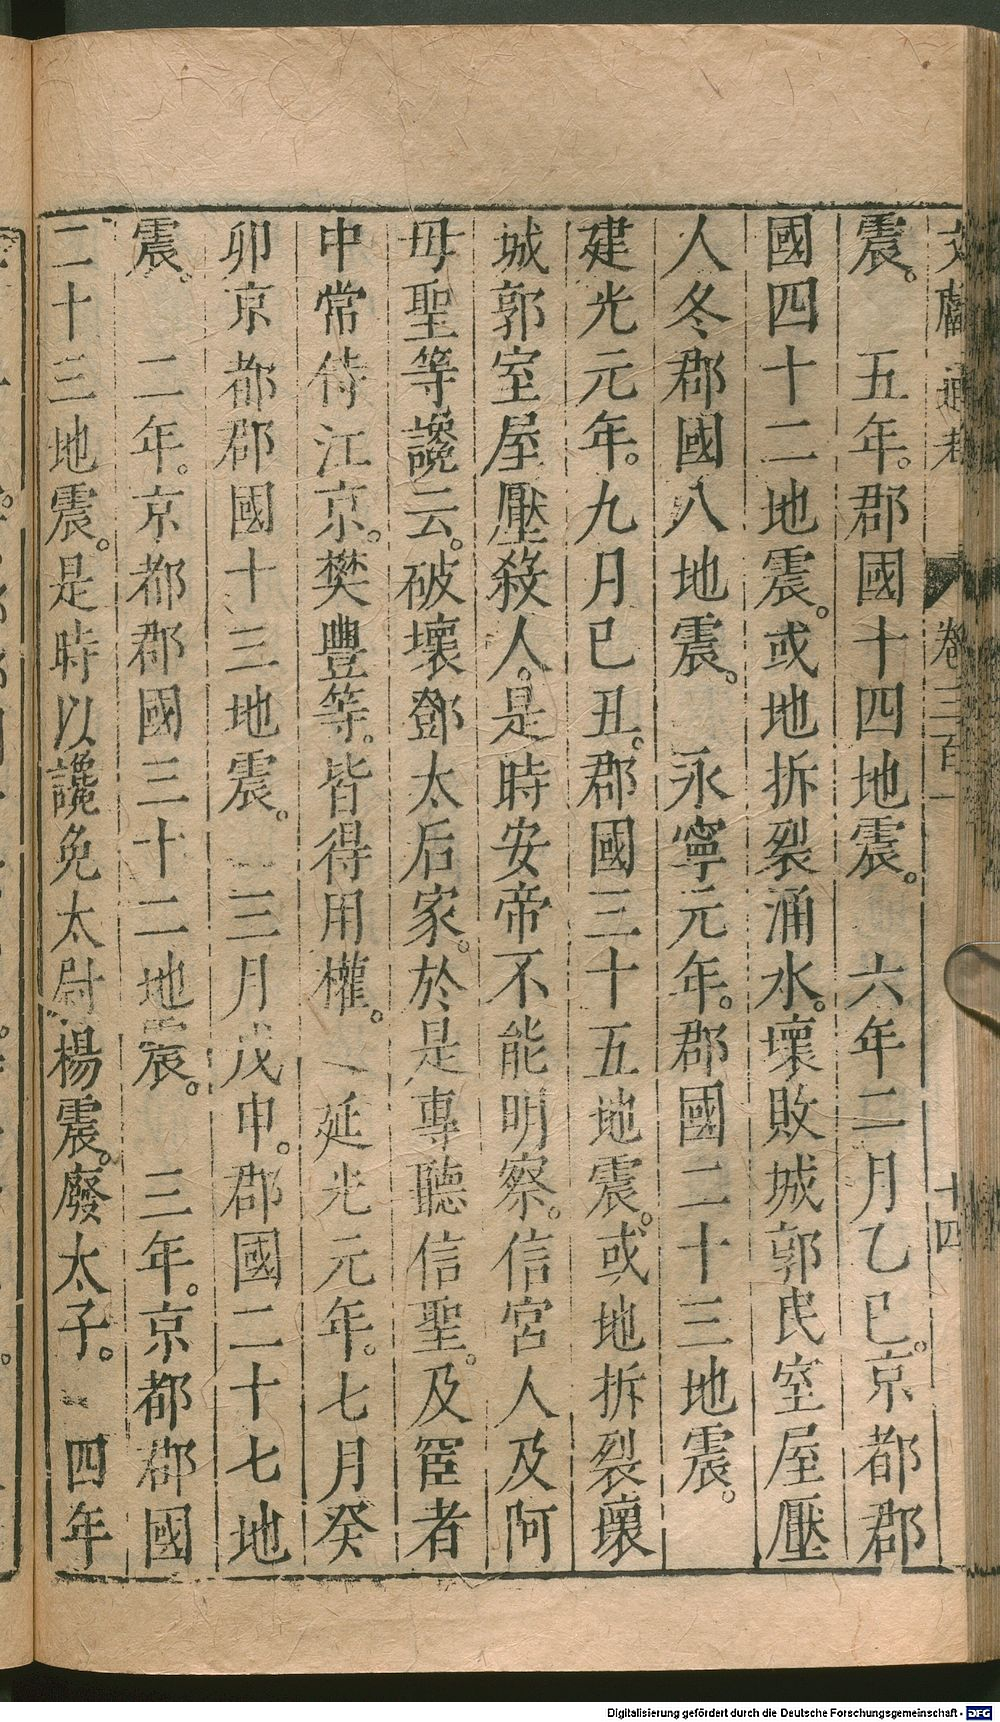 文獻通考 卷三百一 十四
震。 五年。郡國十四地震。 六年二月乙巳。京都郡
國四十二地震。或地拆裂涌水。壞敗城郭民室屋壓
人冬郡國八地震。 永寧元年。郡國二十三地震。
建光元年。九月己丑。郡國三十五地震。或地拆裂壞
城郭室屋壓殺人。是時安帝不能明察。信宮人及阿
母聖等讒云。破壞鄧太后家。於是專聽信聖。及宦者
中常侍江京。樊豐等。皆得用權。 延光元年。七月癸
卯京都郡國十三地震。 三月戊申。郡國二十七地
震。 二年。京都郡國三十二地震。 三年。京都郡國
二十三地震。是時以讒免太尉楊震。廢太子。 四年
Digitalisierung gefördert durch die Deutsche Forschungsgemeinschaft - DFG